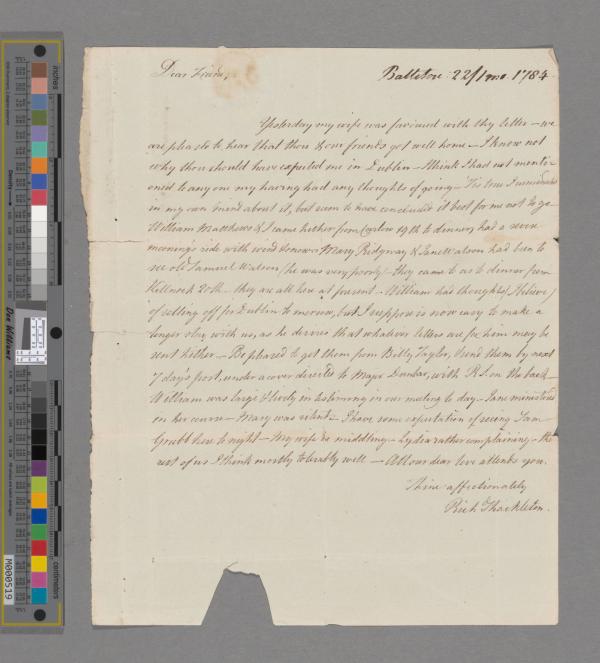 Dear Friend,
Ballitore 22/1mo 1784
Yesterday my wife was favoured with thy letter — we
are pleased to hear that thou & our friends got well home — I know not
why thou should have expected me in Dublin — I think I had not menti-
oned to any one my having had any thoughts of going — Tis true I
in my own mind about it, but seem to have concluded it best for me not to go
William Matthews & I came hither from Carlow 19th to dinner, had a severe
mornings ride with wind & snow — Mary Ridgway & Jane Watson had been to
see old Samuel Watson (he was very poorly) — they came to us to dinner from
Killnock 20th — they are all here at present — William had thoughts (I believe)
of setting off for Dublin to morrow, but I suppose is now easy to make a
longer stay with us, as he desires that whatever letters are for him may be
sent hither — Be pleased to get them from Billy Taylor, & send them by next
7 day's post, under a cover directed to Major Dunbar, with R.S. on the back —
William was large & lively in testimony on our meeting to day — Jane ministered
on her course — Mary was silent — I have some expectation of seeing Sam
Grubb here to night — My wife is middling — Lydia rather complaining — the
rest of us I think mostly tolerably well — All our dear love attends you.
Thine affectionately
Rich Shackleton.
inches
centimetres
Density
Don Williams
M000519